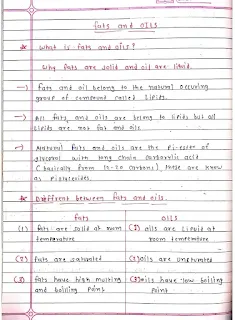 fats and oils
* What is fats and oils?
Why fats are solid and oil are liquid.
→ fats and oil belong to the natural occuring
group of compound called lipids.
→ All fats and oils are belong to lipids but all
lipids are not fat and oils.
→ Natural fats and oils are the tri-ester of
glycerol with long chain carboxylic acid
(basically from 10-20 carbons) these are know
as
* Different between fats and oils.
fats OILS
(1) fats are solid at room (1) oils are liquid at
temperature room temperature
(2) fats are saturated (2) oils are unsaturated
(3) fats have high melting (3) oils have low boiling
and boiling point point